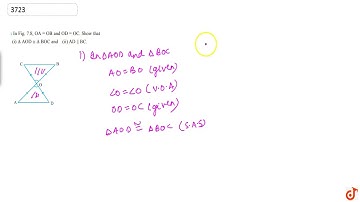 3723
: In Fig. 7.8, OA = OB and OD = OC. Show that
(i) Δ AOD ≅ Δ BOC and (ii) AD || BC.
C B
O
A D
1) In ΔAOD and ΔBOC
AO = BO (given)
∠O = ∠O (V.O.A)
OD = OC (given)
ΔAOD ≅ ΔBOC (S.A.S)